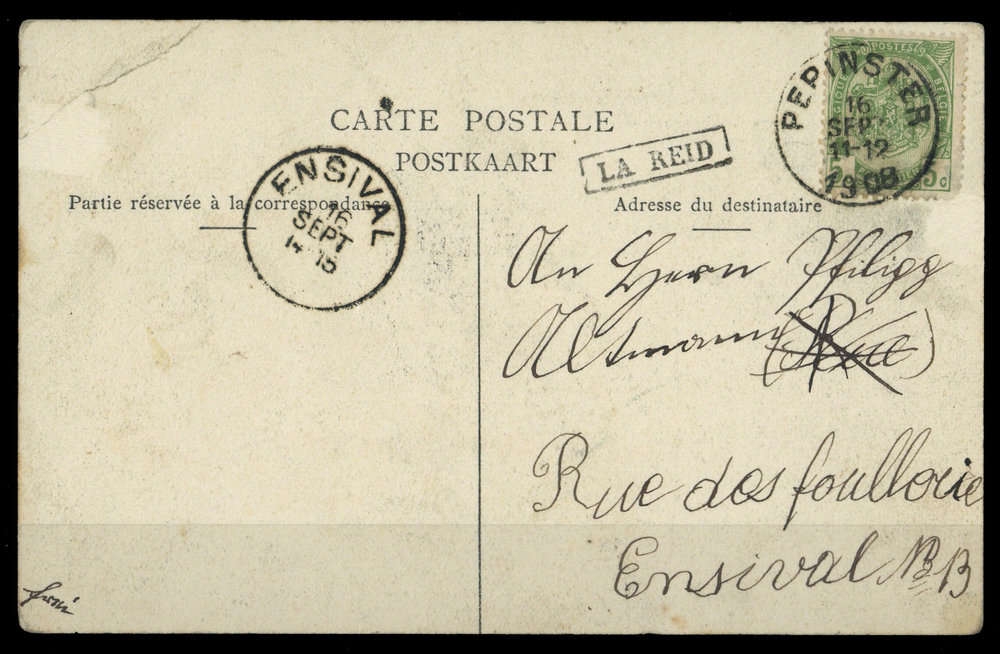 CARTE POSTALE
POSTKAART
Partie réservée à la correspondance
Adresse du destinataire
LA REID
POSTES
BELGIE
5 c
PEPINSTER
16
SEPT
11-12
1908
ENSIVAL
16
SEPT
14 15
An Herrn Philipp
Altmann
Rue des foullerie
Ensival